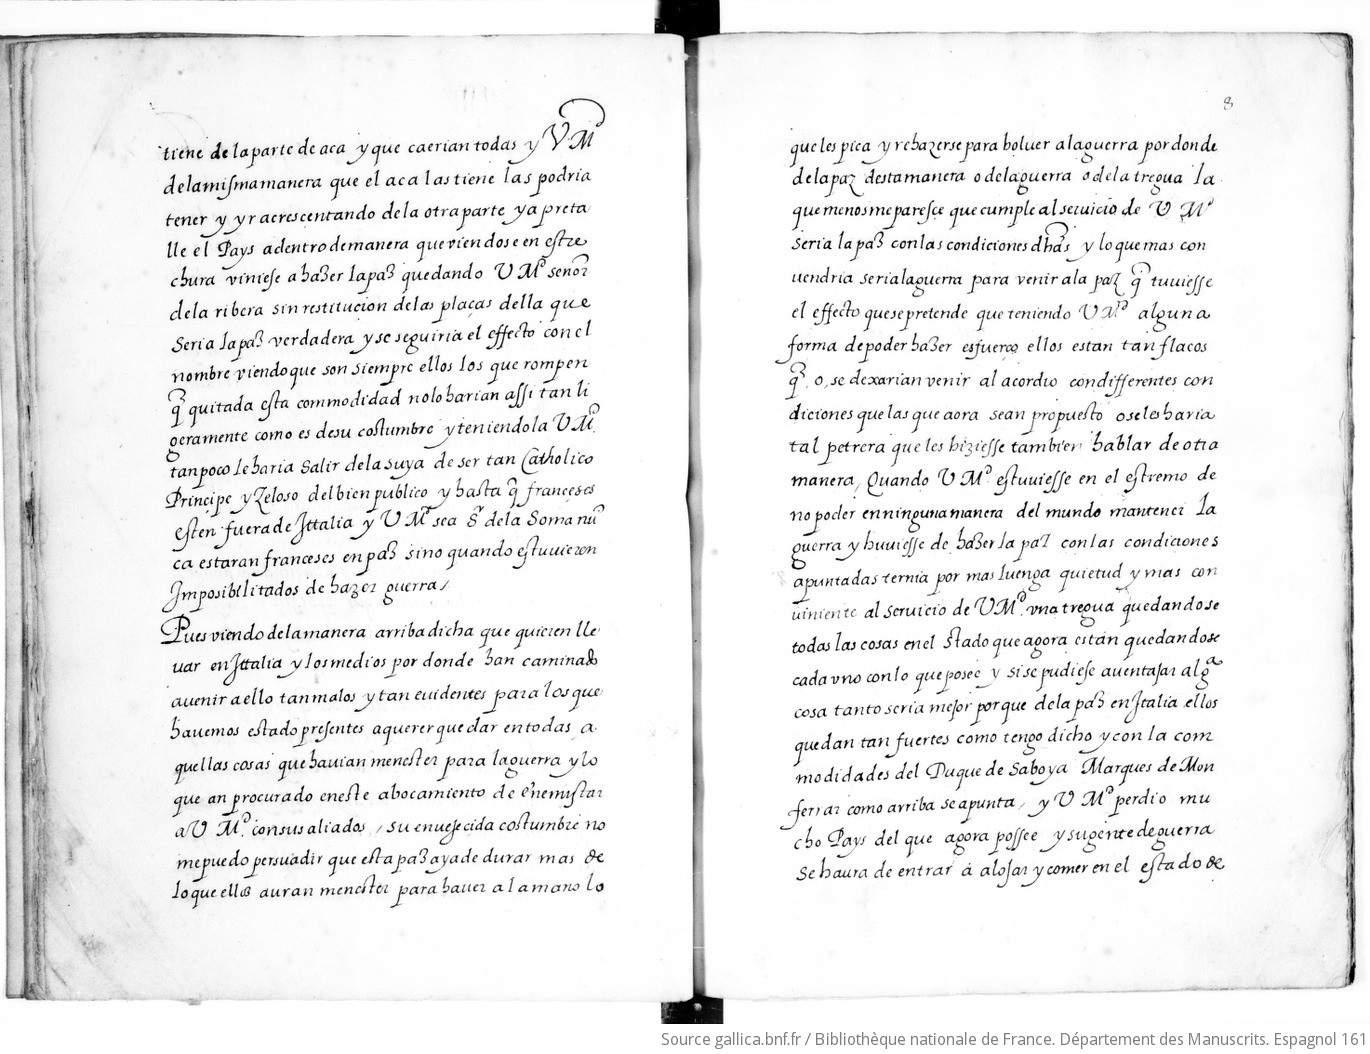 tiene de la parte de aca y que caerian todas y V. M.d
de la misma manera que el aca las tiene las podria
tener y yr acrescentando de la otra parte y apreta
lle el Pays adentro de manera que viendose en estre
chura viniese a hazer la paz quedando V M.d señor
de la ribera sin restitucion de las plaças della que
Seria la paz verdadera y se seguiria el effecto con el
nombre viendo que son siempre ellos los que rompen
q̃ quitada esta commodidad nolo harian assi tan li
geramente como es de su costumbre y teniendola V M.d
tanpoco le haria salir de la suya de ser tan Catholico
Principe y Zeloso del bien publico y hasta q̃ franceses
esten fuera de Jttalia y V M.d sea S.r de la Soma nũ
ca estaran franceses en paz sino quando estuvieren
Jmposibilitados de hazer guerra /
Pues viendo de la manera arriba dicha que quieren lle
uar en Jttalia y los medios por donde han caminado
a venir a ello tan malos y tan evidentes para los que
havemos estado presentes a querer quedar en todas a
quellas cosas que havian menester para la guerra y lo
que an procurado en este abocamiento de enemistar
a V M.d con sus aliados / su envejecida costumbre no
me puedo persuadir que esta paz aya de durar mas de
lo que ellos auran menester para haver a la mano lo
8
que les pica y rehazerse para boluer a la guerra por donde
de la paz desta manera o de la guerra o de la tregua la
que menos me paresce que cumple al seruicio de V M.d
Seria la paz con las condiciones dhas y lo que mas con
uendria seria la guerra para venir a la paz q̃ tuuiesse
el effecto que se pretende que teniendo V M.d alguna
forma de poder hazer esfuerço ellos estan tan flacos
q̃ o, se dexarian venir al acordio con differentes con
diciones que las que aora se an propuesto o se les haria
tal petrera que les hiziesse tambien hablar de otra
manera, Quando V M.d estuuiesse en el estremo de
no poder en ninguna manera del mundo mantener la
guerra y huuiesse de hazer la paz con las condiciones
apuntadas ternia por mas luenga quietud y mas con
uiniente al seruicio de V M.d vna tregua quedandose
todas las cosas en el Stado que agora estan quedandose
cada vno con lo que posee y si se pudiese aventajar alg.a
cosa tanto seria mejor porque de la paz en Jtalia ellos
quedan tan fuertes como tengo dicho y con la com
modidades del Duque de Saboya Marques de Mon
ferrar como arriba se apunta, y V M.d perdio mu
cho Pays del que agora possee y su gente de guerra
Se haura de entrar á alojar y comer en el estado de
Source gallica.bnf.fr / Bibliothèque nationale de France. Département des Manuscrits. Espagnol 161